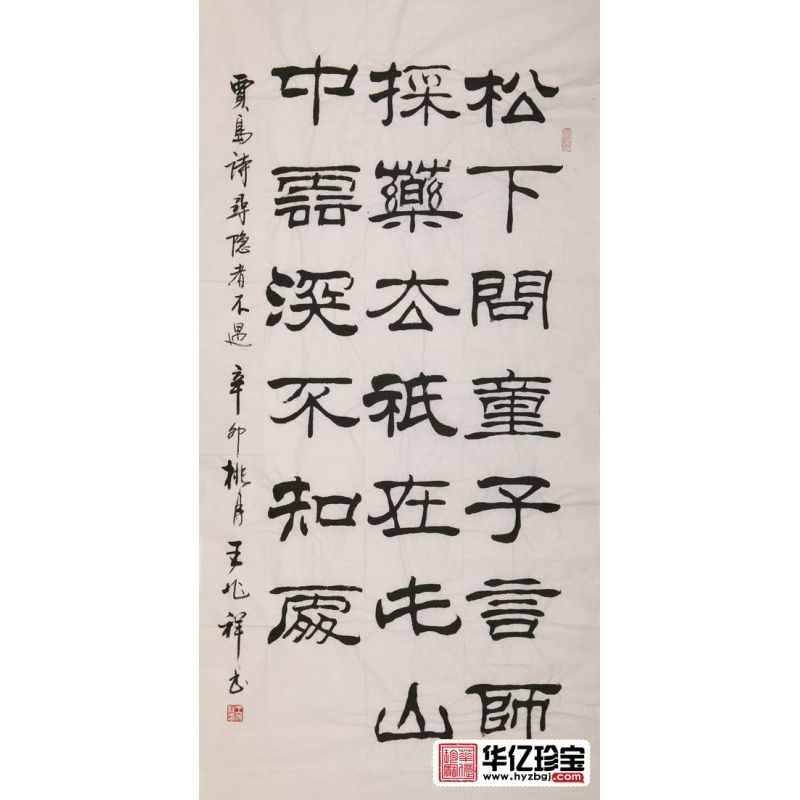 松下問童子言師
採藥去祇在此山
中雲深不知處
賈島詩尋隐者不遇 辛卯桃月 王兆祥书
华亿珍宝
www.hyzbgj.com